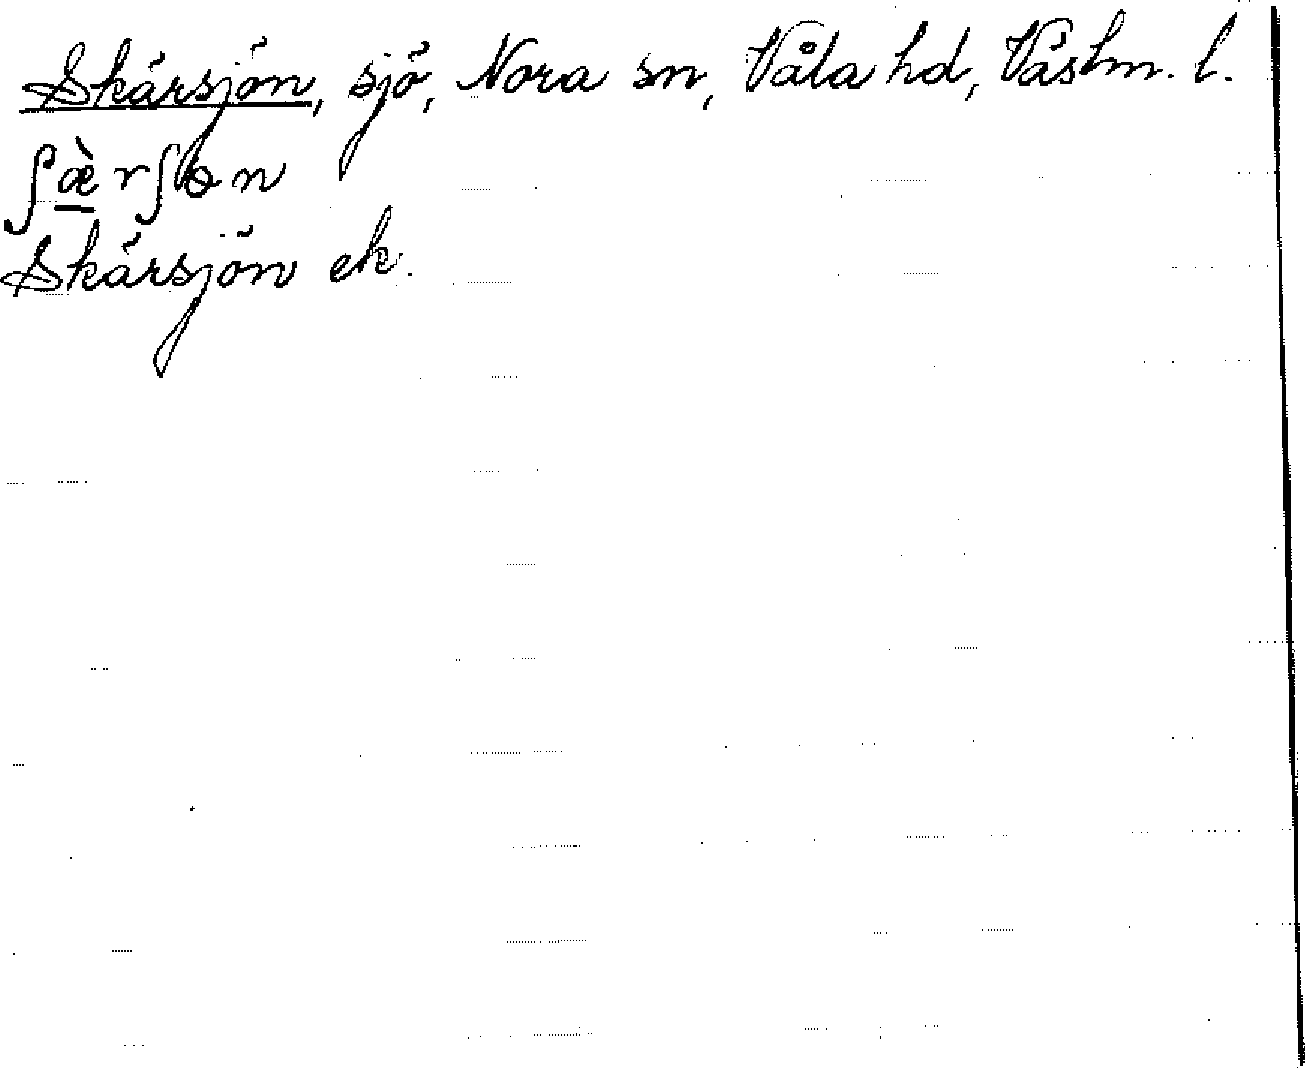 Skärsjön, sjö, Nora sn, Våla hd, Västm. l.
ʃæ̀rʃɵn
Skärsjön ek.